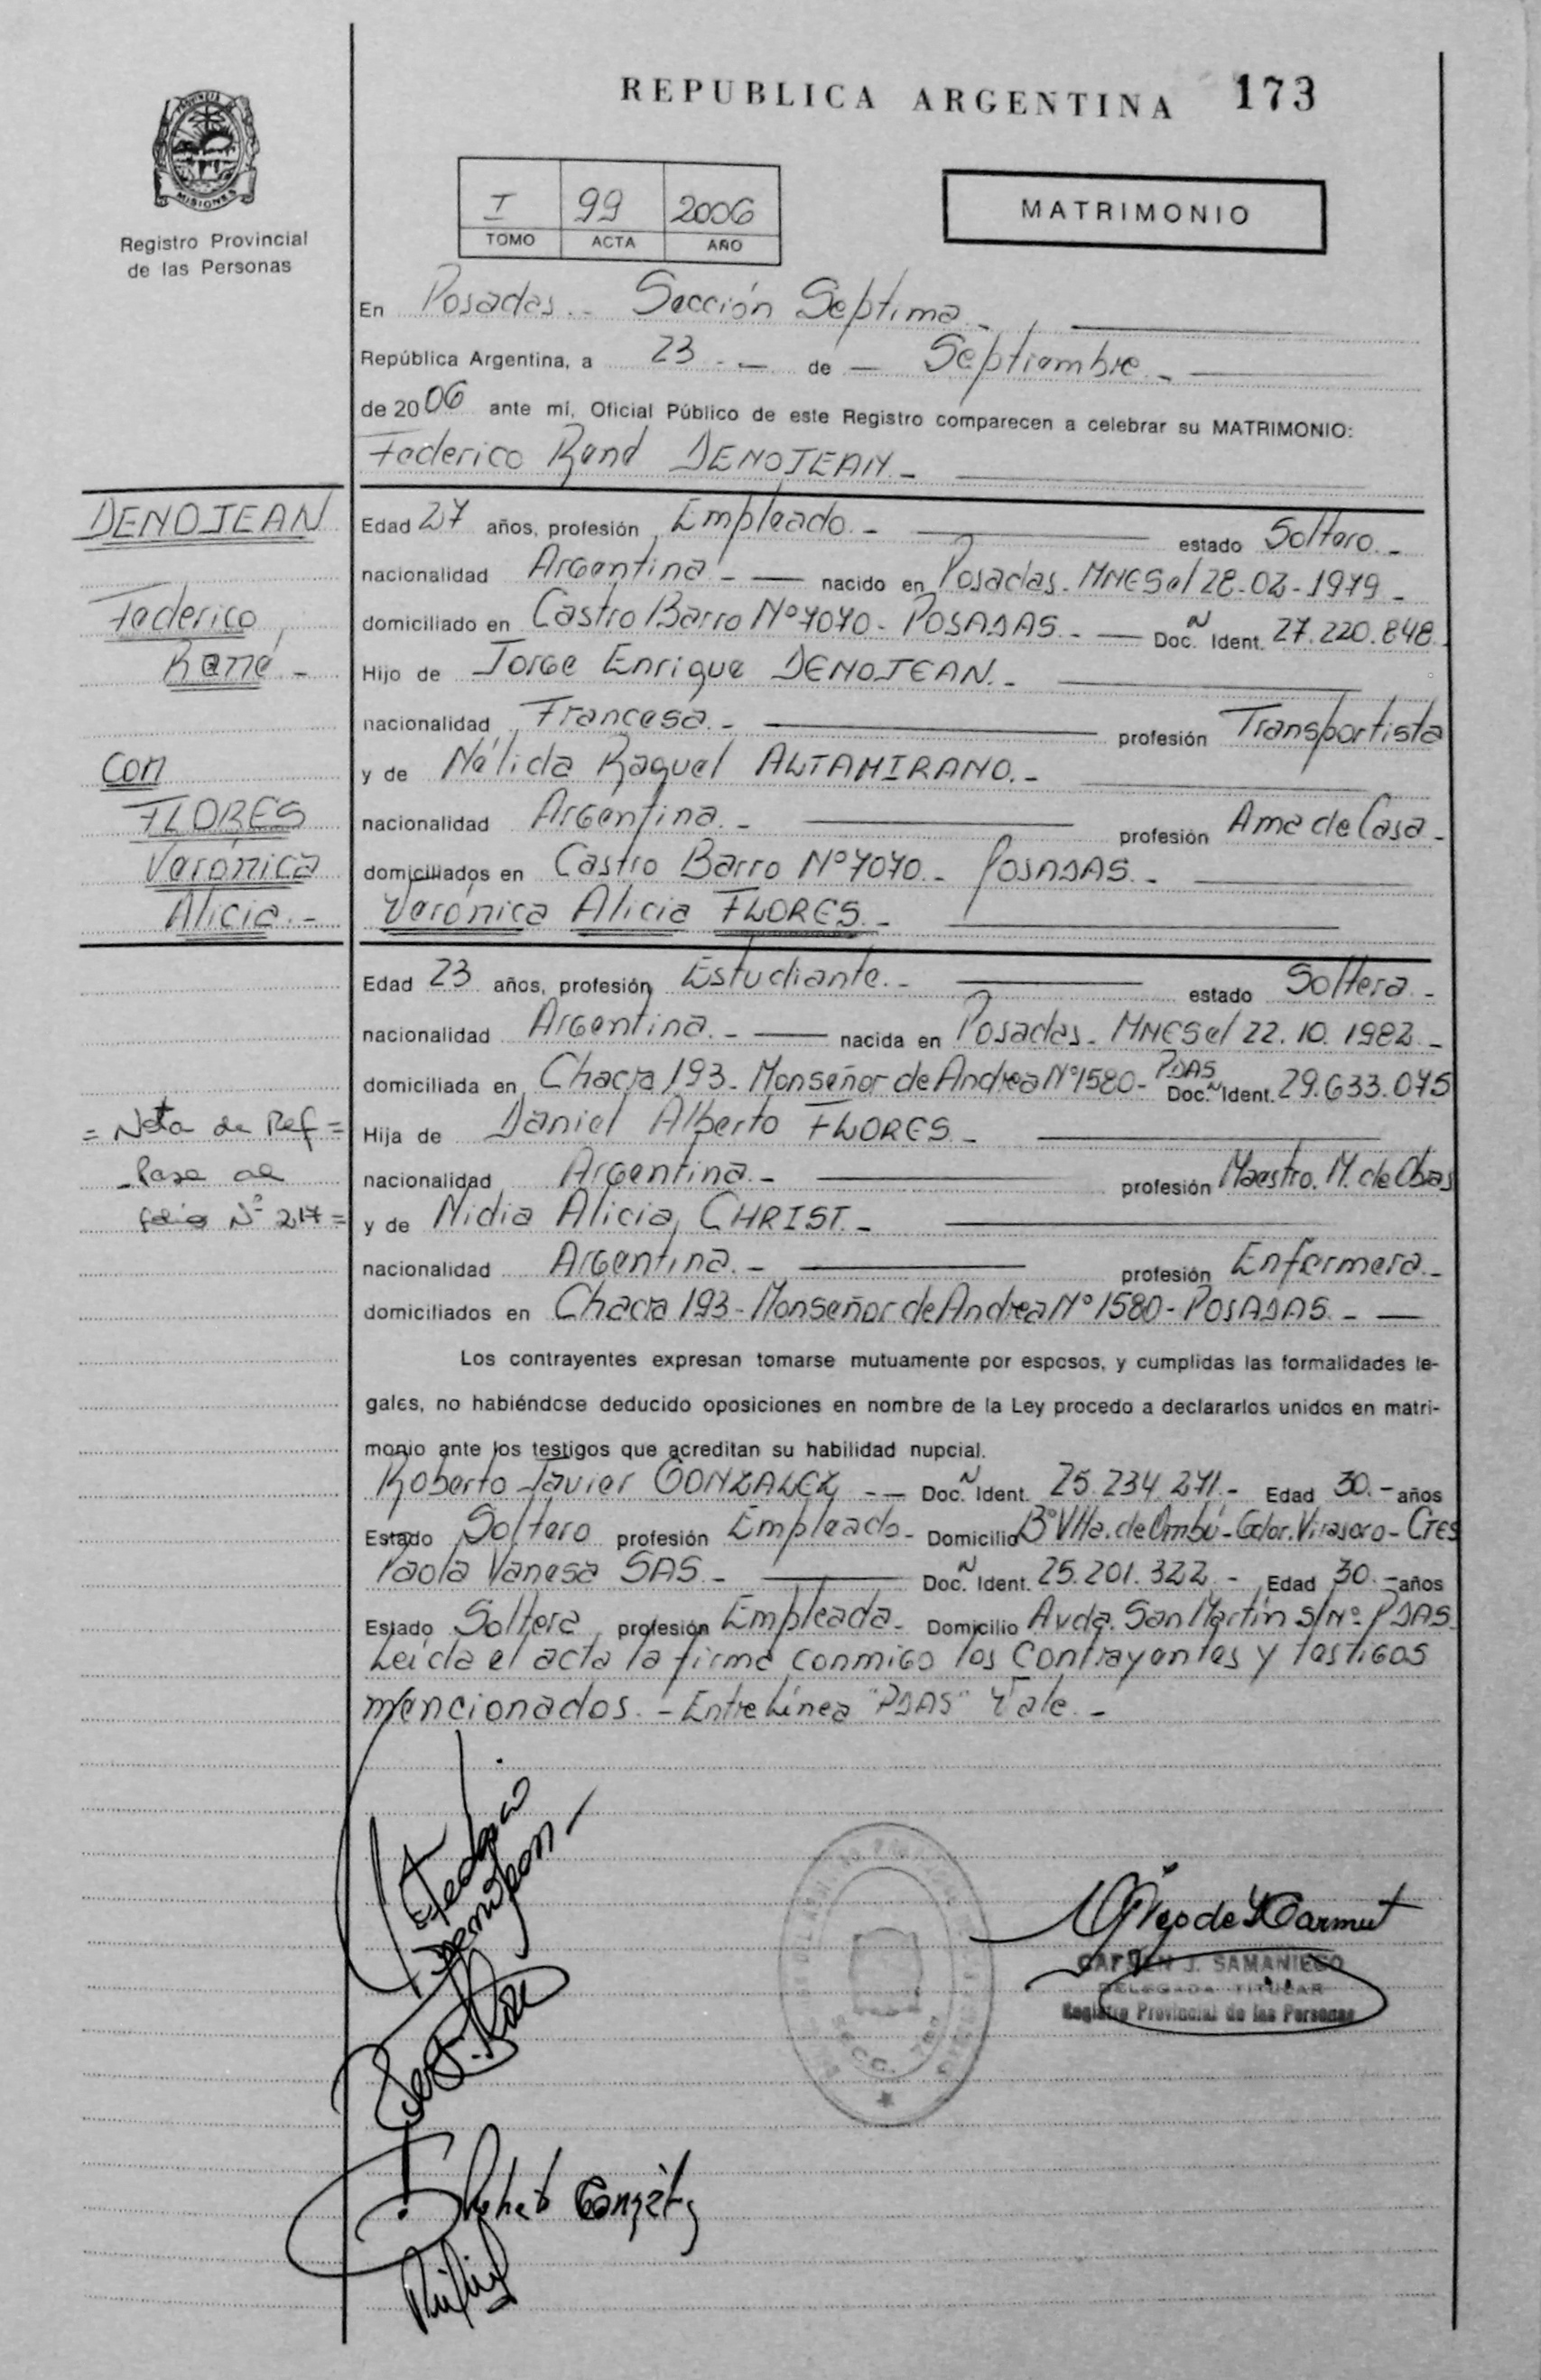 REPUBLICA ARGENTINA 173
MISIONES
Registro Provincial
de las Personas
I 99 2006
TOMO ACTA AÑO
MATRIMONIO
En Posadas.- Sección Septima.-
República Argentina, a 23.- de Septiembre.-
de 2006 ante mí, Oficial Público de este Registro comparecen a celebrar su MATRIMONIO:
Federico René DENOJEAN.-
DENOJEAN
Federico
René.-
Con
FLORES
Verónica
Alicia.-
Edad 27 años, profesión Empleado.- estado Soltero.-
nacionalidad Argentina.- nacido en Posadas. MNES el 28-02-1979.-
domiciliado en Castro Barro Nº 7070- POSADAS.- Doc. Ident. 27.220.848
Hijo de Jorge Enrique DENOJEAN.-
nacionalidad Francesa.- profesión Transportista
y de Nélida Raquel ALTAMIRANO.-
nacionalidad Argentina.- profesión Ama de Casa.-
domiciliados en Castro Barro Nº 7070.- POSADAS.-
Verónica Alicia FLORES.-
Edad 23 años, profesión Estudiante.- estado Soltera.-
nacionalidad Argentina.- nacida en Posadas- MNES el 22.10.1982.-
domiciliada en Chacra 193- Monseñor de Andrea Nº 1580- PDAS Doc. Ident. 29.633.075
= Nota de Ref =
- Pase al
folio Nº 217 =
Hija de Daniel Alberto FLORES.-
nacionalidad Argentina.- profesión Maestro. M. de Obras
y de Nidia Alicia CHRIST.-
nacionalidad Argentina.- profesión Enfermera.-
domiciliados en Chacra 193- Monseñor de Andrea Nº 1580- POSADAS.-
Los contrayentes expresan tomarse mutuamente por esposos, y cumplidas las formalidades le-
gales, no habiéndose deducido oposiciones en nombre de la Ley procedo a declararlos unidos en matri-
monio ante los testigos que acreditan su habilidad nupcial.
Roberto Javier GONZALEZ.- Doc. Ident. 25.234.271.- Edad 30.- años
Estado Soltero profesión Empleado- Domicilio Bº Vlla. de Ombú- Gdor. Virasoro- CTES
Paola Vanesa SAS.- Doc. Ident. 25.201.322.- Edad 30.- años
Estado Soltera profesión Empleada- Domicilio Avda. San Martín S/Nº PDAS
Leída el acta la firma conmigo los Contrayentes y testigos
mencionados.- Entre Línea "PDAS" Vale.-
CARMEN J. SAMANIEGO
DELEGADA TITULAR
Registro Provincial de las Personas